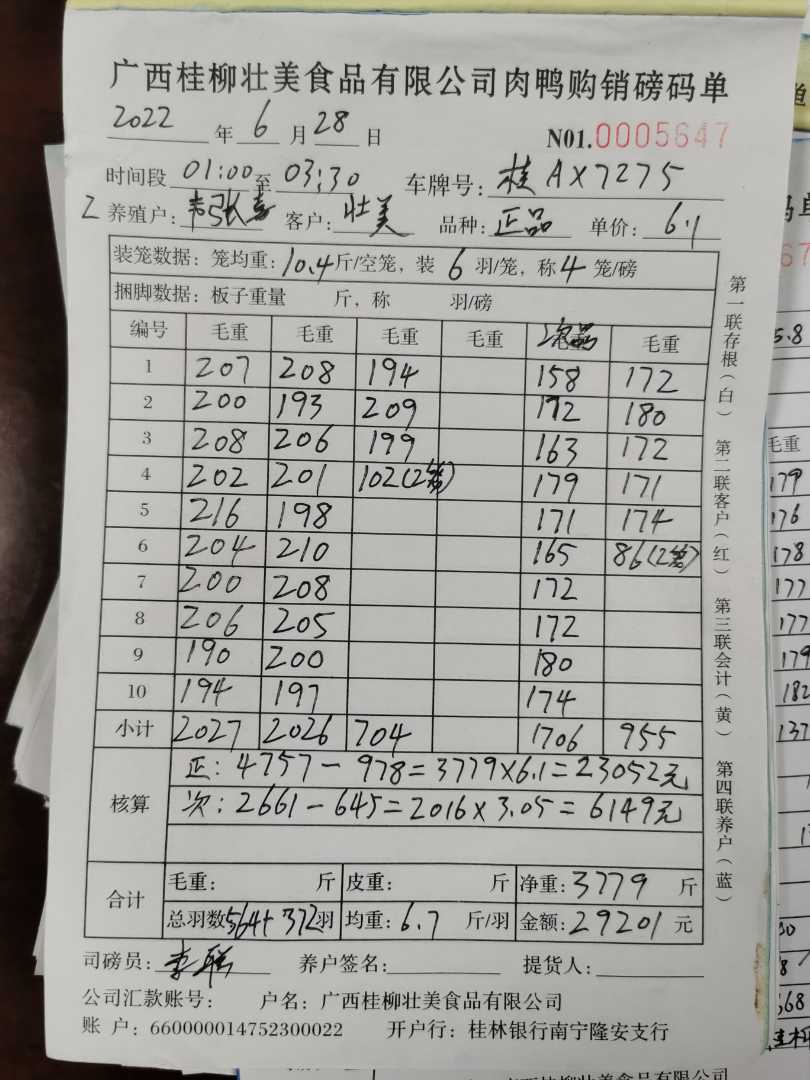 广西桂柳壮美食品有限公司肉鸭购销磅码单
2022 年 6 月 28 日 N01.0005647
时间段 01:00 至 03:30 车牌号: 桂AX7275
养殖户: 客户: 壮美 品种: 正品 单价: 6.1
装笼数据: 笼均重: 10.4 斤/空笼, 装 6 羽/笼, 称 4 笼/磅
捆脚数据: 板子重量 斤, 称 羽/磅
编号 毛重 毛重 毛重 毛重 次品 毛重
1 207 208 194 158 172
2 200 193 209 172 180
3 208 206 199 163 172
4 202 201 102(2笼) 179 171
5 216 198 171 174
6 204 210 165 86(2笼)
7 200 208 172
8 206 205 172
9 190 200 180
10 194 197 174
小计 2027 2026 704 1706 955
核算 正: 4757-978=3779×6.1=23052元
次: 2661-645=2016×3.05=6149元
合计 毛重: 斤 皮重: 斤 净重: 3779 斤
总羽数 564+372 羽 均重: 6.7 斤/羽 金额: 29201 元
司磅员: 养户签名: 提货人:
公司汇款账号: 户名: 广西桂柳壮美食品有限公司
账 户: 660000014752300022 开户行: 桂林银行南宁隆安支行
第一联存根(白) 第二联客户(红) 第三联会计(黄) 第四联养户(蓝)
5.8
毛重
179
176
178
177
177
179
182
137